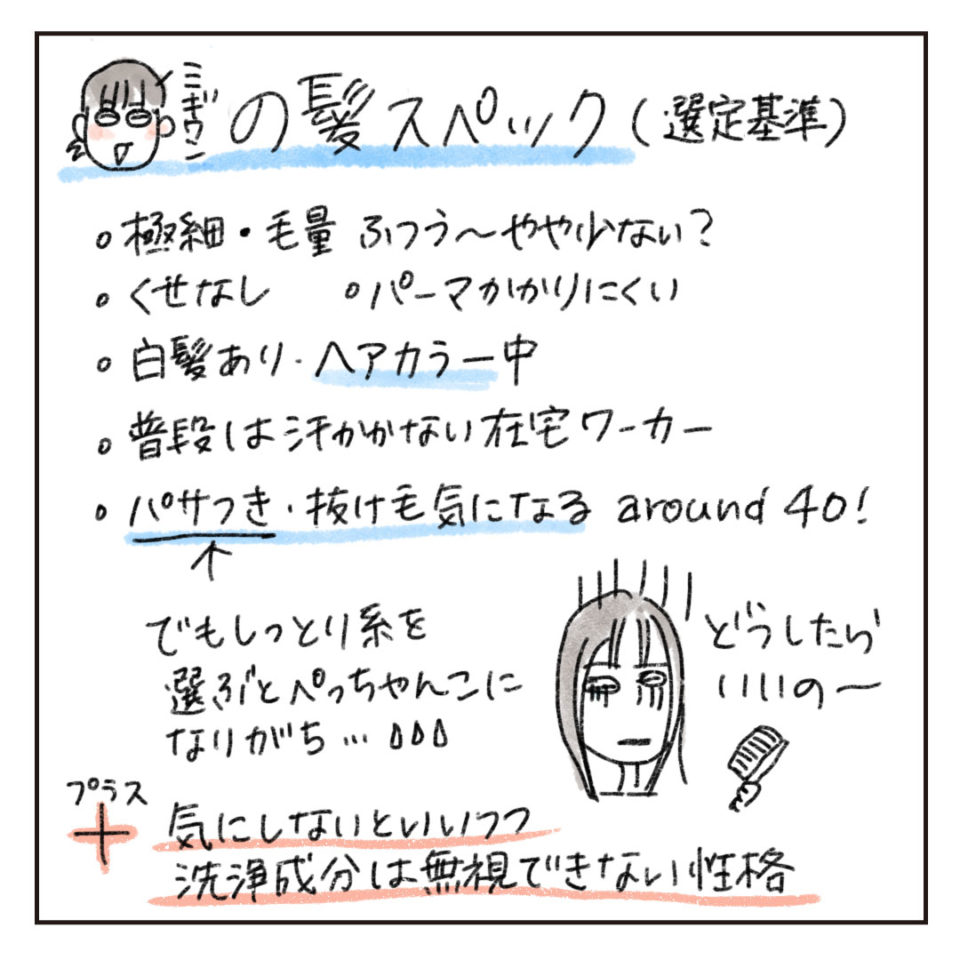 ミギワンの髪スペック(選定基準)
。極細・毛量 ふつう〜やや少ない?
。くせなし 。パーマかかりにくい
。白髪あり・ヘアカラー中
。普段は汗かかない在宅ワーカー
。パサつき・抜け毛気になる around 40!
↑
でもしっとり系を
選ぶとぺっちゃんこに
なりがち…
どうしたら
いいの〜
プラス
+
気にしないといいつつ
洗浄成分は無視できない性格